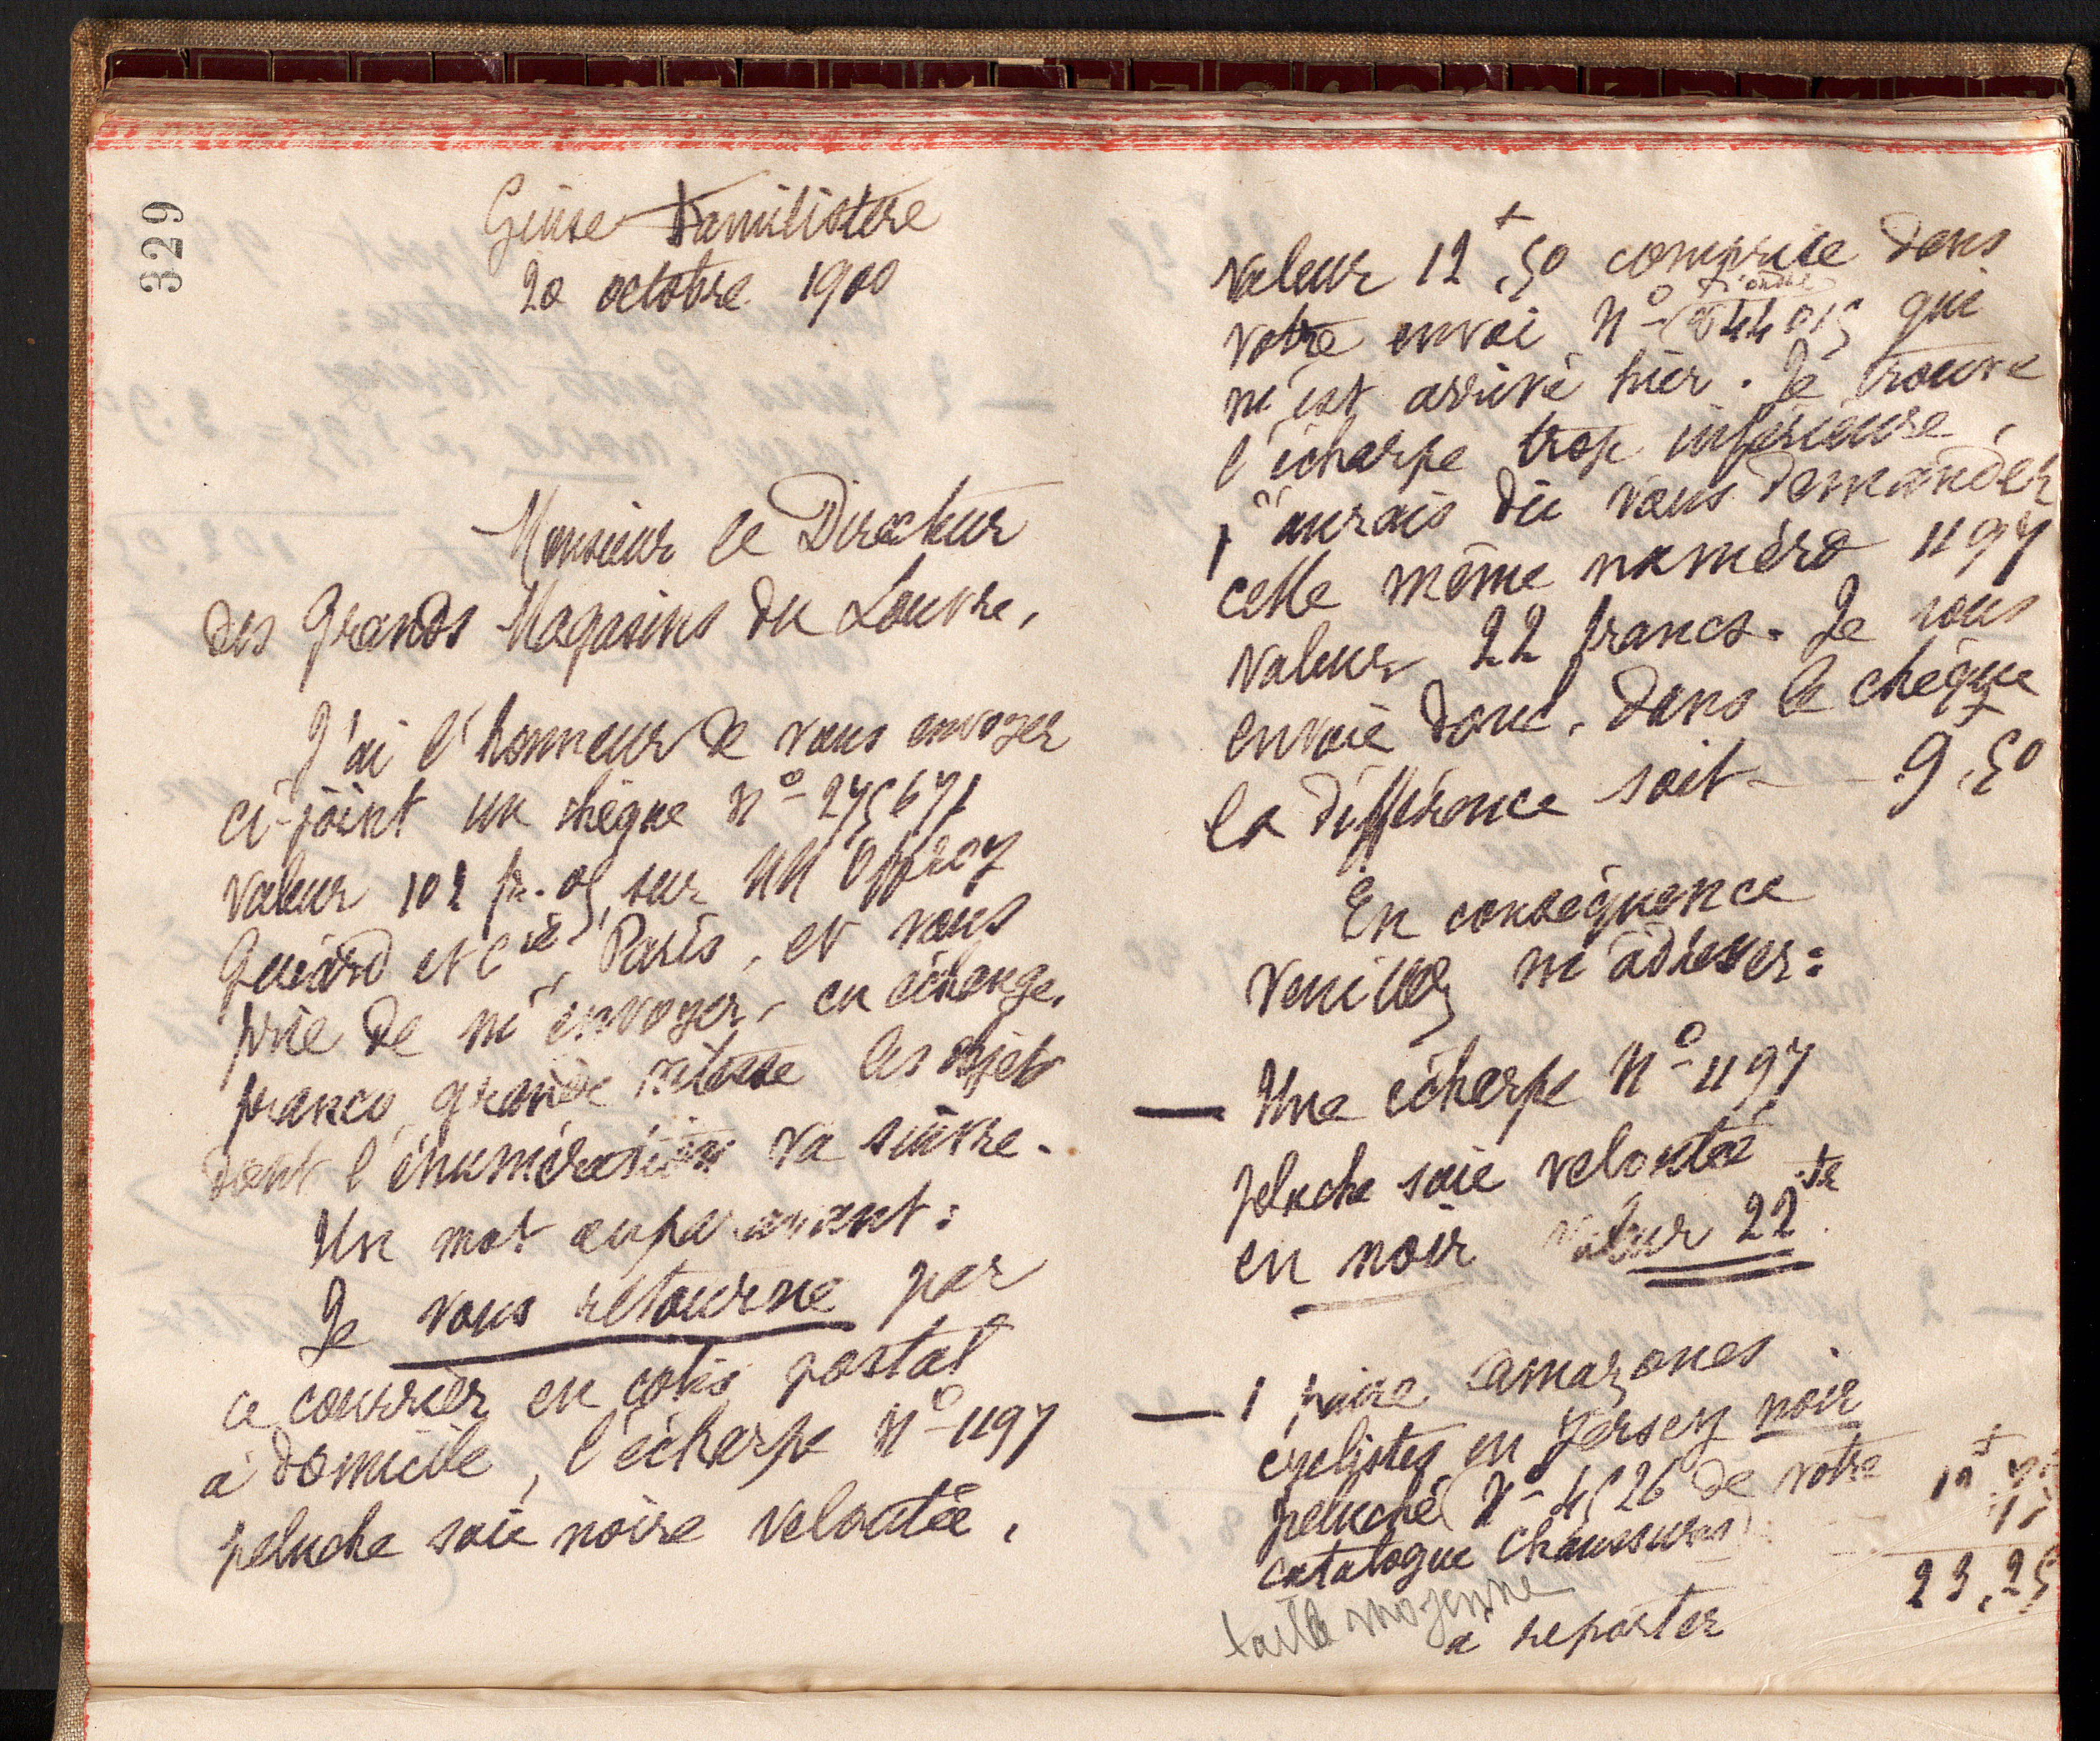 329
Guise Familistère
20 octobre 1900
Monsieur le Directeur
des Grands Magasins du Louvre,
J'ai l'honneur de vous envoyer
ci-joint un chèque No 275671
valeur 102 fr. 05, sur MM Offroy
Guiard et Cie, Paris, et vous
prie de m'envoyer, en échange,
franco grande vitesse les objets
dont l'énumération va suivre.
Un mot auparavant:
Je vous retourne par
ce courrier en colis postal
à domicile, l'écharpe No 1197
peluche soie noire veloutée,
valeur 12f,50 comprise dans
votre envoi No 44015 qui
m'est arrivé hier. Je trouve
l'écharpe trop inférieure,
j'aurais dû vous demander
celle même numéro 1197
valeur 22 francs. Je vous
envoie donc, dans le chèque
la différence soit 9f,50
En conséquence
veuillez m'adresser:
— Une écharpe No 1197
peluche soie veloutée
en noir valeur 22 fr.
— 1 paire amazones
cyclistes en Jersey noir
peluché (No 4526 de votre
catalogue Chaussures)
23,25
taille moyenne
à reporter